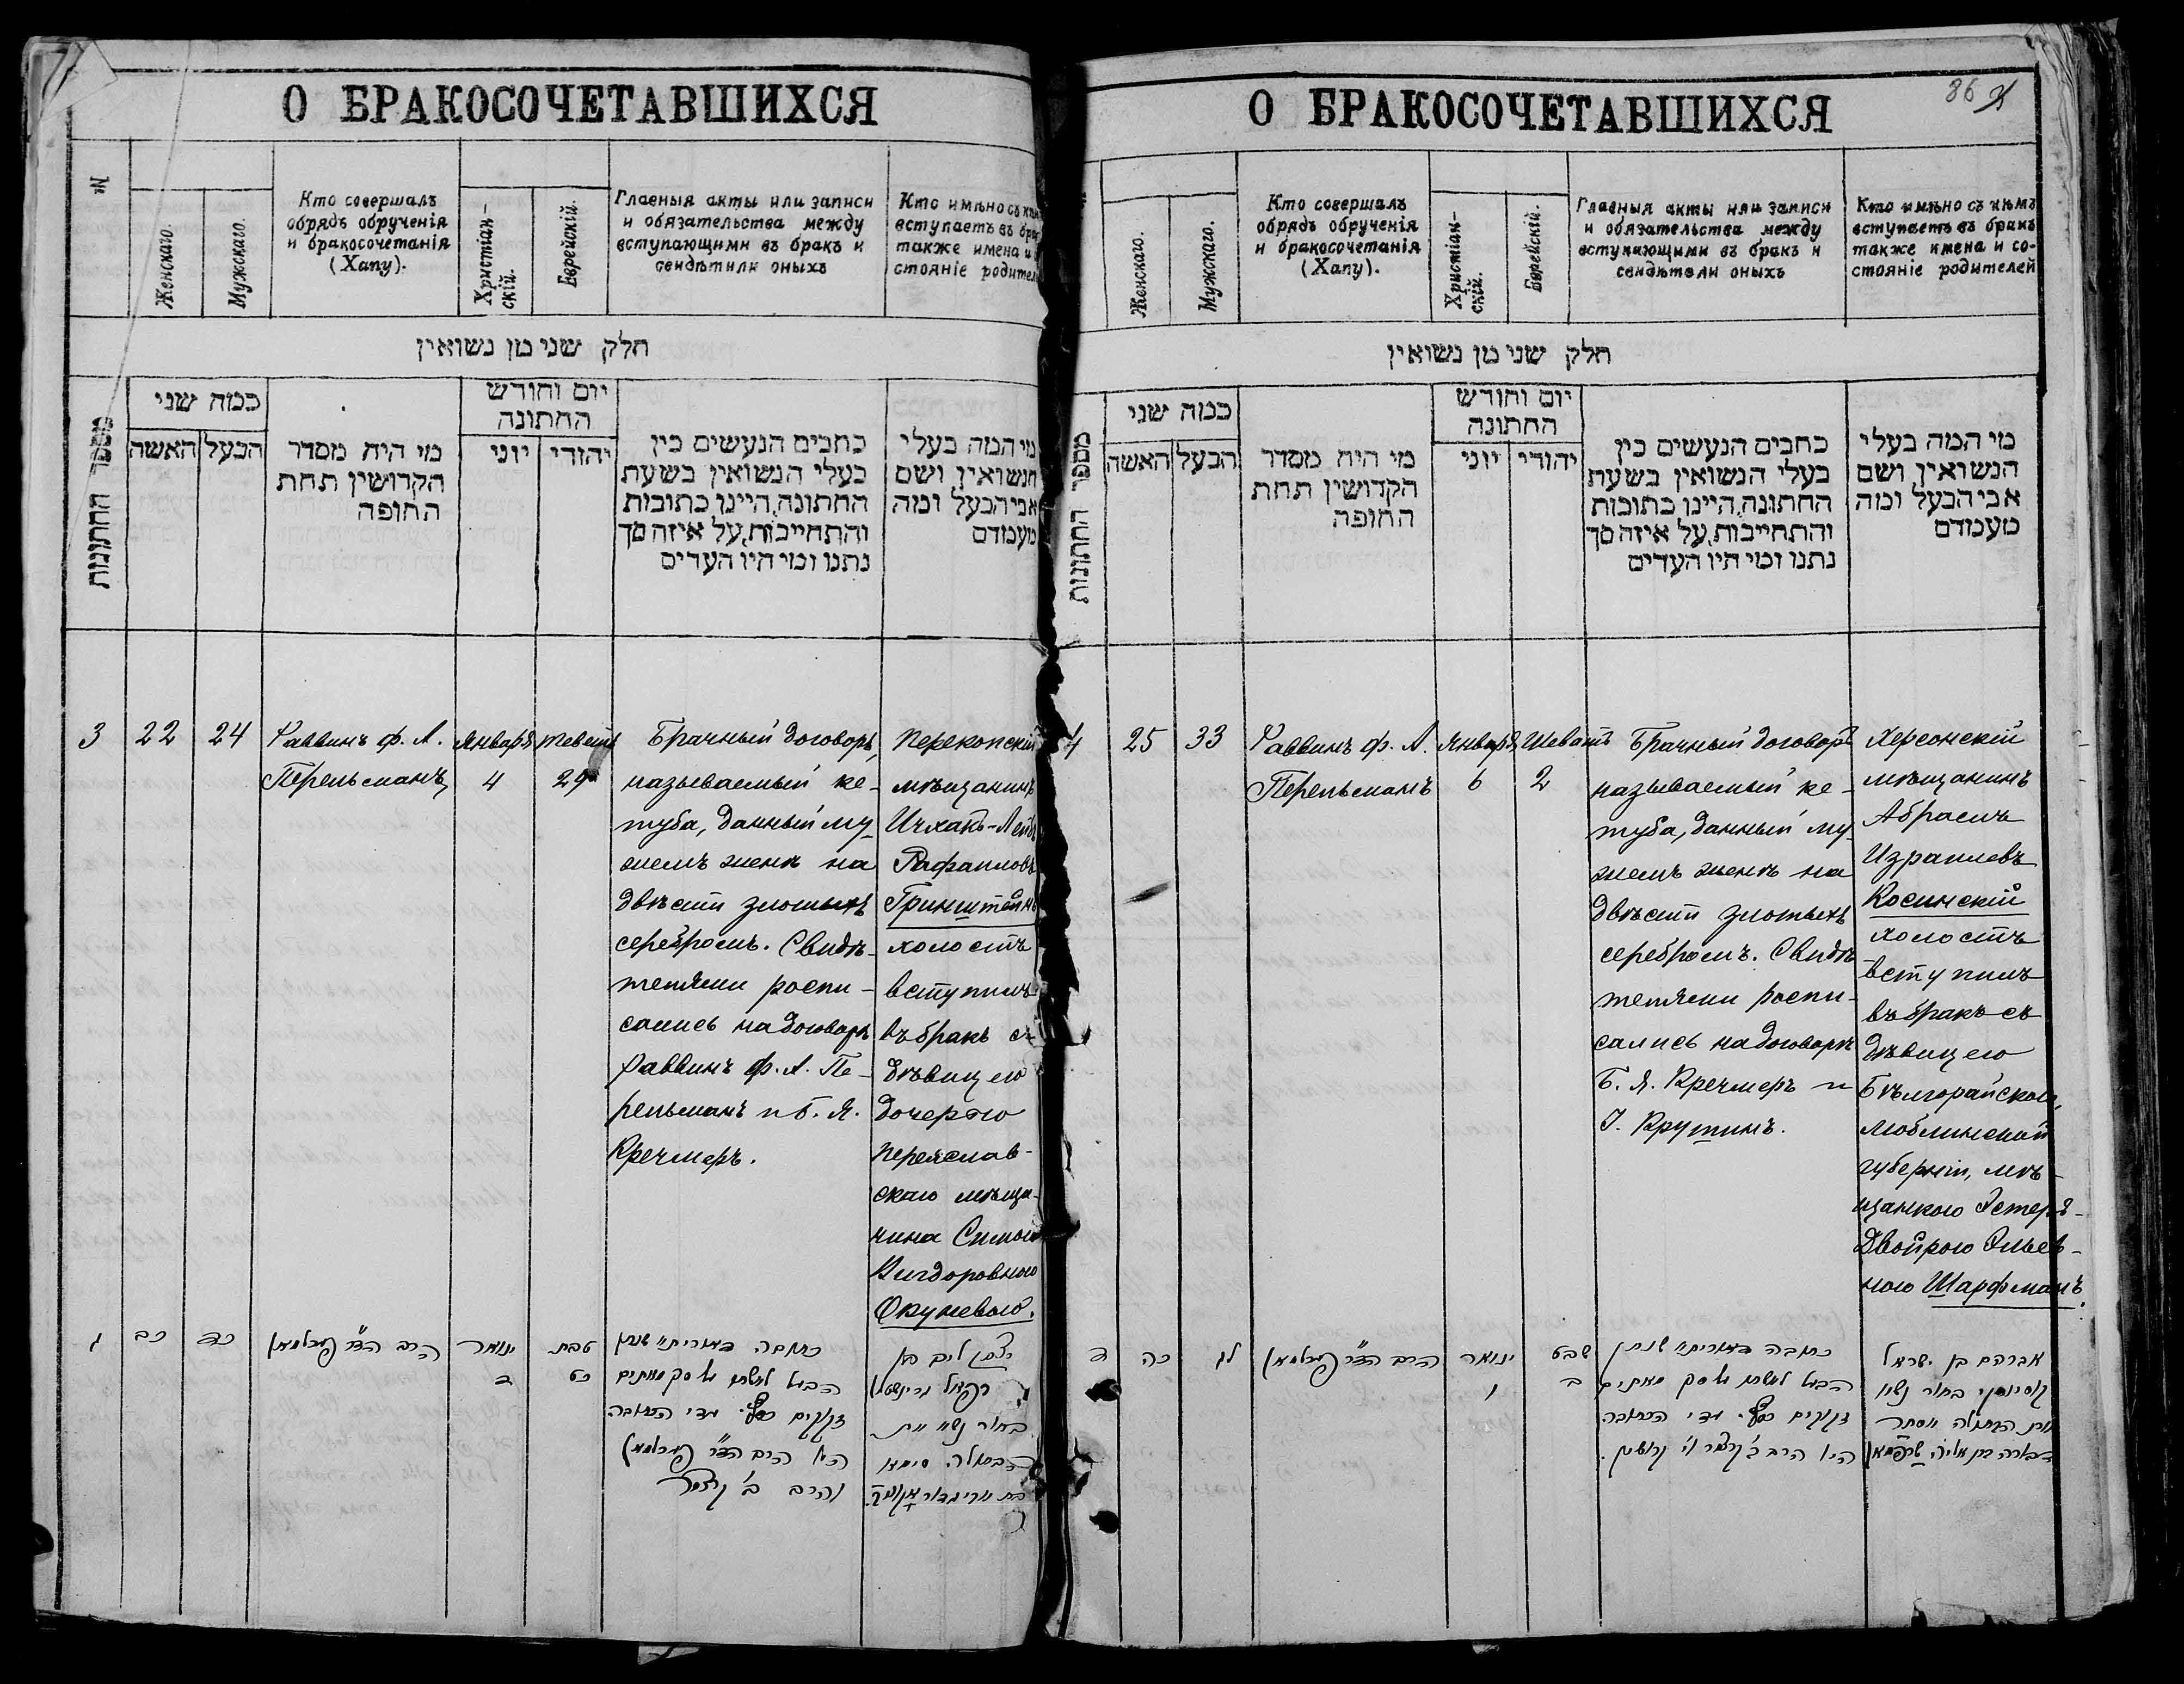 О БРАКОСОЧЕТАВШИХСЯ
№
Женскаго.
Мужскаго.
Кто совершалъ
обрядъ обрученія
и бракосочетанія
(Хапу).
Христіан-
скій.
Еврейскій.
Главныя акты или записи
и обязательства между
вступающими въ бракъ и
свидѣтили оныхъ
Кто имѣно съ
вступаетъ въ
также имена и
стояніе
חלק שני מן נשואין
מספר החתונות
כמה שני
האשה
הבעל
מי היה מסדר
הקדושין תחת
החופה
יום וחודש
החתונה
יוני
יהודי
כתבים הנעשים בין
בעלי הנשואין בשעת
החתונה, היינו כתובות
והתחייבות, על איזה סך
נתנו ומי היו העדים
מי המה בעלי
הנשואין ושם
אבי הבעל ומה
מעמדם
3
22
24
Раввинъ Ф. А.
Перельманъ
Январь
4
Тевета
29
Брачный договоръ,
называемый ке-
туба, данный му-
жемъ женѣ на
двѣсти злотыхъ
серебромъ. Свидѣ-
телями роспи-
сались на договорѣ
раввинъ Ф. А. Пе-
рельманъ и Б. Я.
Кречмеръ.
Перекопскій
мѣщанинъ
Ицхакъ-Лейбъ
Рафаиловъ
Гринштейнъ
холостъ
вступилъ
въ бракъ съ
дѣвицею
дочерью
Переяслав-
скаго мѣща-
нина Симою
Вигдоровною
Окуневою.
ג
כב
כד
הרב הד״ר פערלמאן
ינואר
ד
טבת
כט
כתובה
הבעל לאשתו סך מאתים
זקוקים כסף. עדי הכתובה
היו הרב הד״ר פערלמאן
והרב ב׳ קרצמר
יצחק ליב בן
רפאל גרינשטיין
בחור נשא את
הבתולה סימא
בת
О БРАКОСОЧЕТАВШИХСЯ
86
Женскаго.
Мужскаго.
Кто совершалъ
обрядъ обрученія
и бракосочетанія
(Хапу).
Христіан-
скій.
Еврейскій.
Главныя акты или записи
и обязательства между
вступающими въ бракъ и
свидѣтели оныхъ
Кто имѣно съ кѣмъ
вступаетъ въ бракъ
также имена и со-
стояніе родителей
חלק שני מן נשואין
מספר החתונות
כמה שני
האשה
הבעל
מי היה מסדר
הקדושין תחת
החופה
יום וחודש
החתונה
יוני
יהודי
כתבים הנעשים בין
בעלי הנשואין בשעת
החתונה, היינו כתובות
והתחייבות, על איזה סך
נתנו ומי היו העדים
מי המה בעלי
הנשואין ושם
אבי הבעל ומה
מעמדם
4
25
33
Раввинъ Ф. А.
Перельманъ
Январь
6
Шеватъ
2
Брачный договоръ
называемый ке-
туба, данный му-
жемъ женѣ на
двѣсти злотыхъ
серебромъ. Свидѣ-
телями роспи-
сались на договорѣ
Б. Я. Кречмеръ и
І. Крутинъ.
Херсонскій
мѣщанинъ
Абрамъ
Израилевъ
Косинскій
холостъ
вступилъ
въ бракъ съ
дѣвицею
Бѣлгорайскою,
Люблинской
губерніи, мѣ-
щанкою Эстеръ-
Двойрою Эльев-
ною Шарфманъ.
ד
כה
לג
הרב הד״ר פערלמאן
ינואר
ו
שבט
ב
כתובה
הבעל לאשתו סך מאתים
זקוקים כסף. עדי הכתובה
היו הרב ב׳ קרצמר
אברהם בן ישראל
קוסינסקי בחור נשא
את הבתולה אסתר
דבורה בת אליה שרפמאן